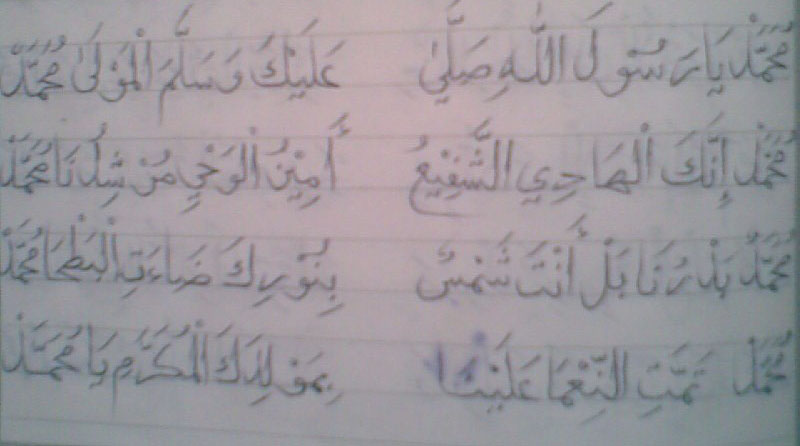 مُحَمَّدْ يَا رَسُولَ اللّٰهِ صَلَّىٰ عَلَيْكَ وَسَلَّمَ الْمَوْلَىٰ مُحَمَّدْ
مُحَمَّدْ إِنَّكَ الْهَادِي الشَّفِيْعُ أَمِيْنُ الْوَحْيِ مُرْشِدُنَا مُحَمَّدْ
مُحَمَّدْ بَدْرُنَا بَلْ أَنْتَ شَمْسٌ بِنُوْرِكَ ضَاءَتِ الْبَطْحَا مُحَمَّدْ
مُحَمَّدْ تَمَّتِ النِّعْمَا عَلَيْنَا بِمَوْلِدِكَ الْمُكَرَّمِ يَا مُحَمَّدْ